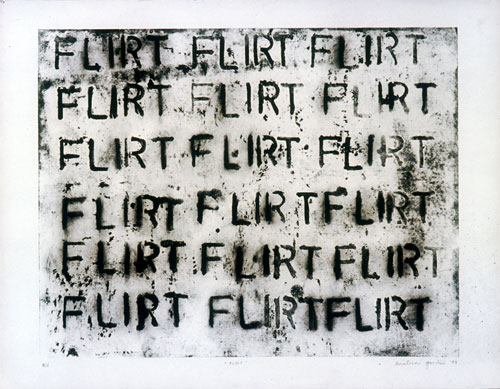 FLIRT FLIRT FLIRT
FLIRT FLIRT FLIRT
FLIRT FLIRT FLIRT
FLIRT FLIRT FLIRT
FLIRT FLIRT FLIRT
FLIRT FLIRT FLIRT